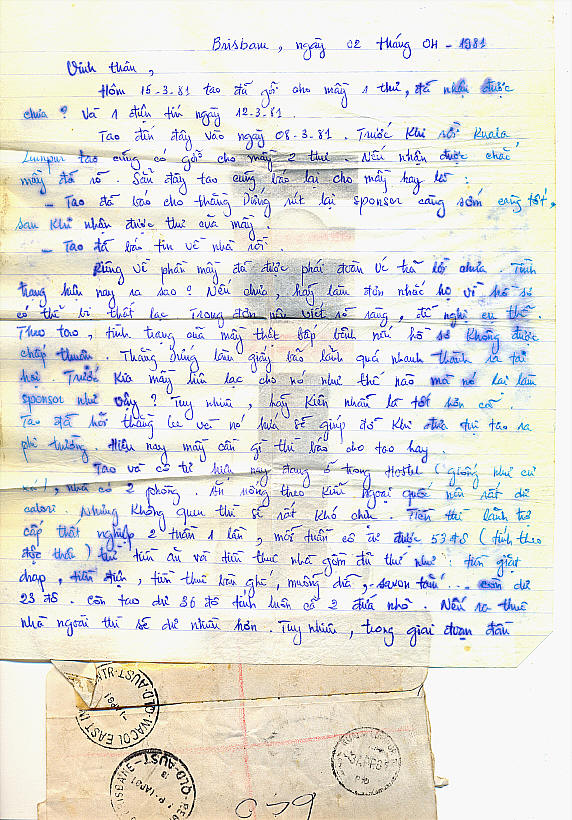 Brisbane, ngày 02 tháng 04 - 1981
Vĩnh thân,
Hôm 15-3-81 tao đã gởi cho mầy 1 thư, đã nhận được
chưa? Và 1 điện tín ngày 12-3-81.
Tao đến đây vào ngày 08-3-81. Trước khi rời Kuala
Lumpur tao cũng có gởi cho mầy 2 thư. Nếu nhận được chắc
mầy đã rõ. Sẵn đây tao cũng báo lại cho mầy hay là:
- Tao đã báo cho thằng Dũng rút lại sponsor càng sớm càng tốt,
sau khi nhận được thư của mầy.
- Tao đã báo tin về nhà rồi.
Riêng về phần mầy đã được phái đoàn Úc trả lời chưa. Tình
trạng hiện nay ra sao? Nếu chưa, hãy làm đơn nhắc họ vì hồ sơ
có thể bị thất lạc. Trong đơn nên viết rõ ràng, đề nghị cụ thể.
Theo tao, tình trạng của mầy thật bấp bênh nếu hồ sơ không được
chấp thuận. Thằng Dũng làm giấy bảo lãnh quá nhanh thành ra tai
hại. Trước kia mầy liên lạc cho nó như thế nào mà nó lại làm
sponsor như vậy? Tuy nhiên, hãy kiên nhẫn là tốt hơn cả.
Tao đã hỏi thằng và nó hứa sẽ giúp đỡ khi đưa tao ra
phi trường. Hiện nay mầy cần gì thì báo cho tao hay.
Tao và cô tư hiện nay đang ở trong Hostel (giống như cư
xá), nhà có 2 phòng. Ăn riêng theo kiểu ngoại quốc nên rất dư
calori. Nhưng không quen thì sẽ rất khó chịu. Tiền thì lãnh trợ
cấp thất nghiệp 2 tuần 1 lần, mỗi tuần cô tư được 53 đô (tính theo
độc thân) trừ tiền ăn và tiền thuê nhà gồm đủ thứ như: tiền giặt
drap, tiền điện, tiền thuê bàn ghế, muỗng dĩa, savon tắm... còn dư
23 đô. Còn tao dư 36 đô tính luôn cả 2 đứa nhỏ. Nếu ra thuê
nhà ngoài thì sẽ dư nhiều hơn. Tuy nhiên, trong giai đoạn đầu
WACOL EAST
QLD-AUST
BRISBANE
QLD-AUST